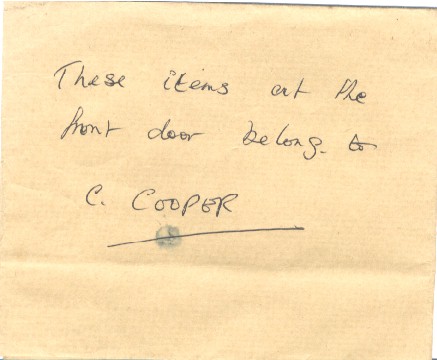 These items at the
front door belong to
C. COOPER